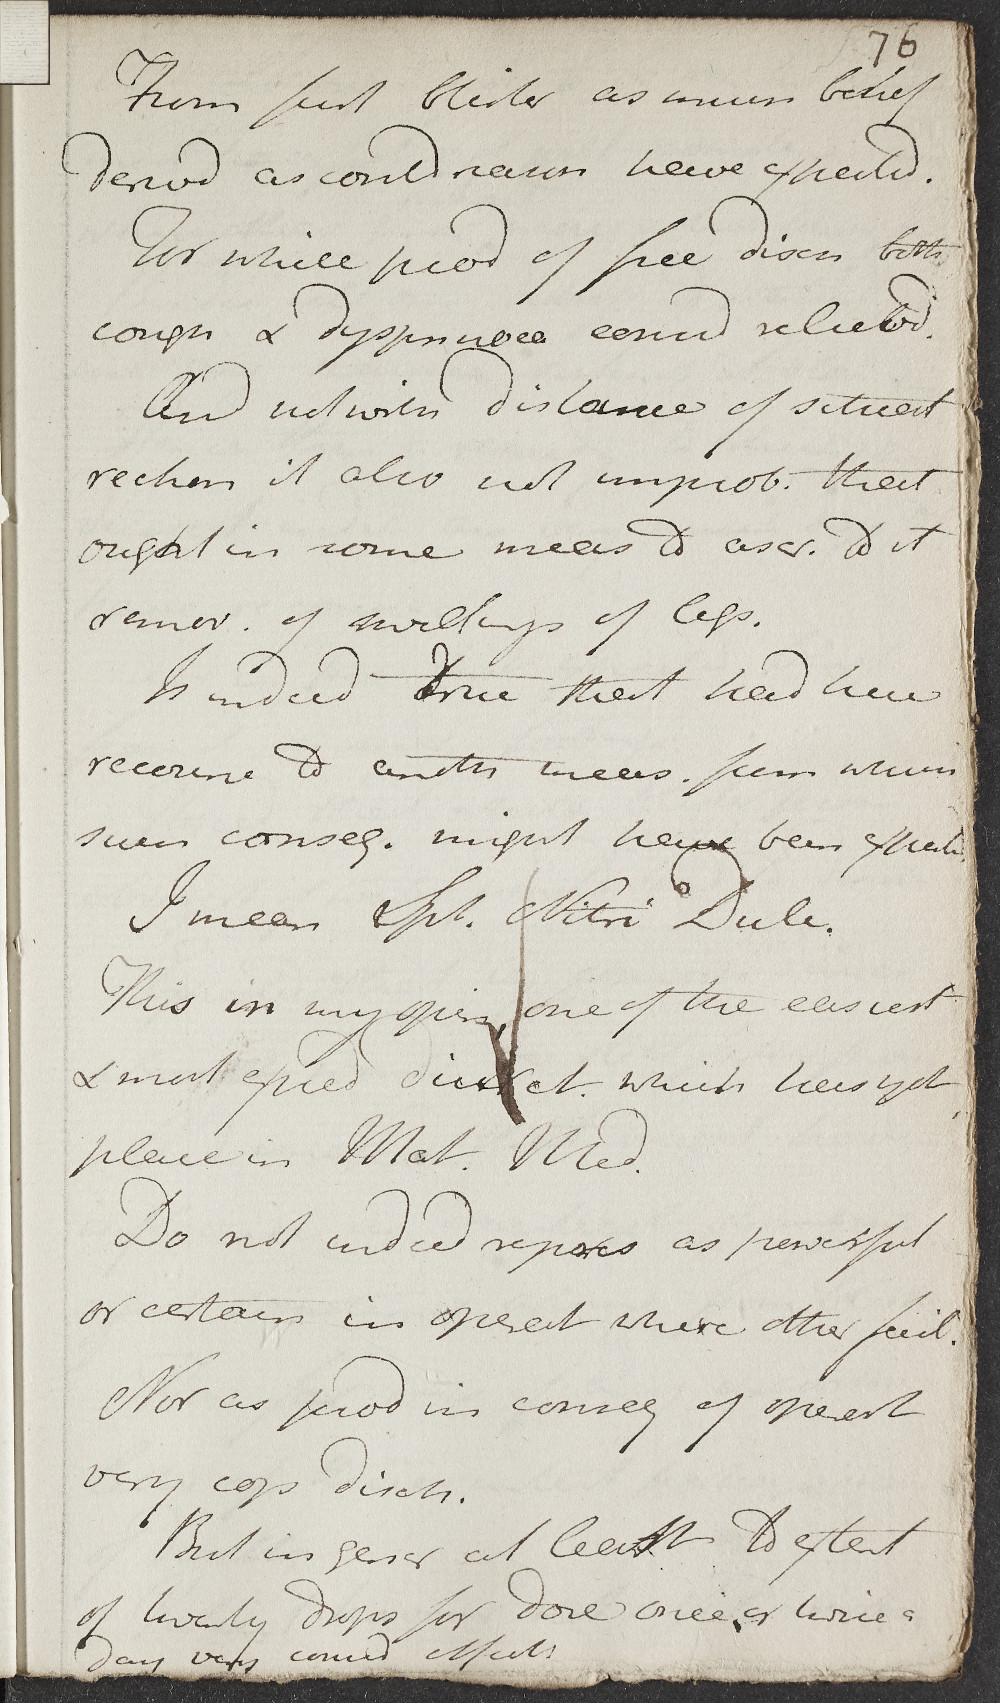 76
From first blister as much belief
derivd as could reason have expected.
For while prod of free disch both
cough & dyspnoea consid relievd.
And notwith distance of situat
reckon it also not improb. that
ought in some meas to ascr. to it
remov. of swellings of legs.
Is indeed true that had here
recourse to anoth meas. from which
such conseq. might have been expect
I mean Spt. Nitri Dulc.
This in my opin one of the easiest
& most exped diuret. which has yet
place in Mat. Med.
Do not indeed repres as powerful
or certain in operat where other fail.
Nor as prod in conseq of operat
very cops disch.
But in gener at least to extent
of twenty drops for dose once or twice a
day very consid effects